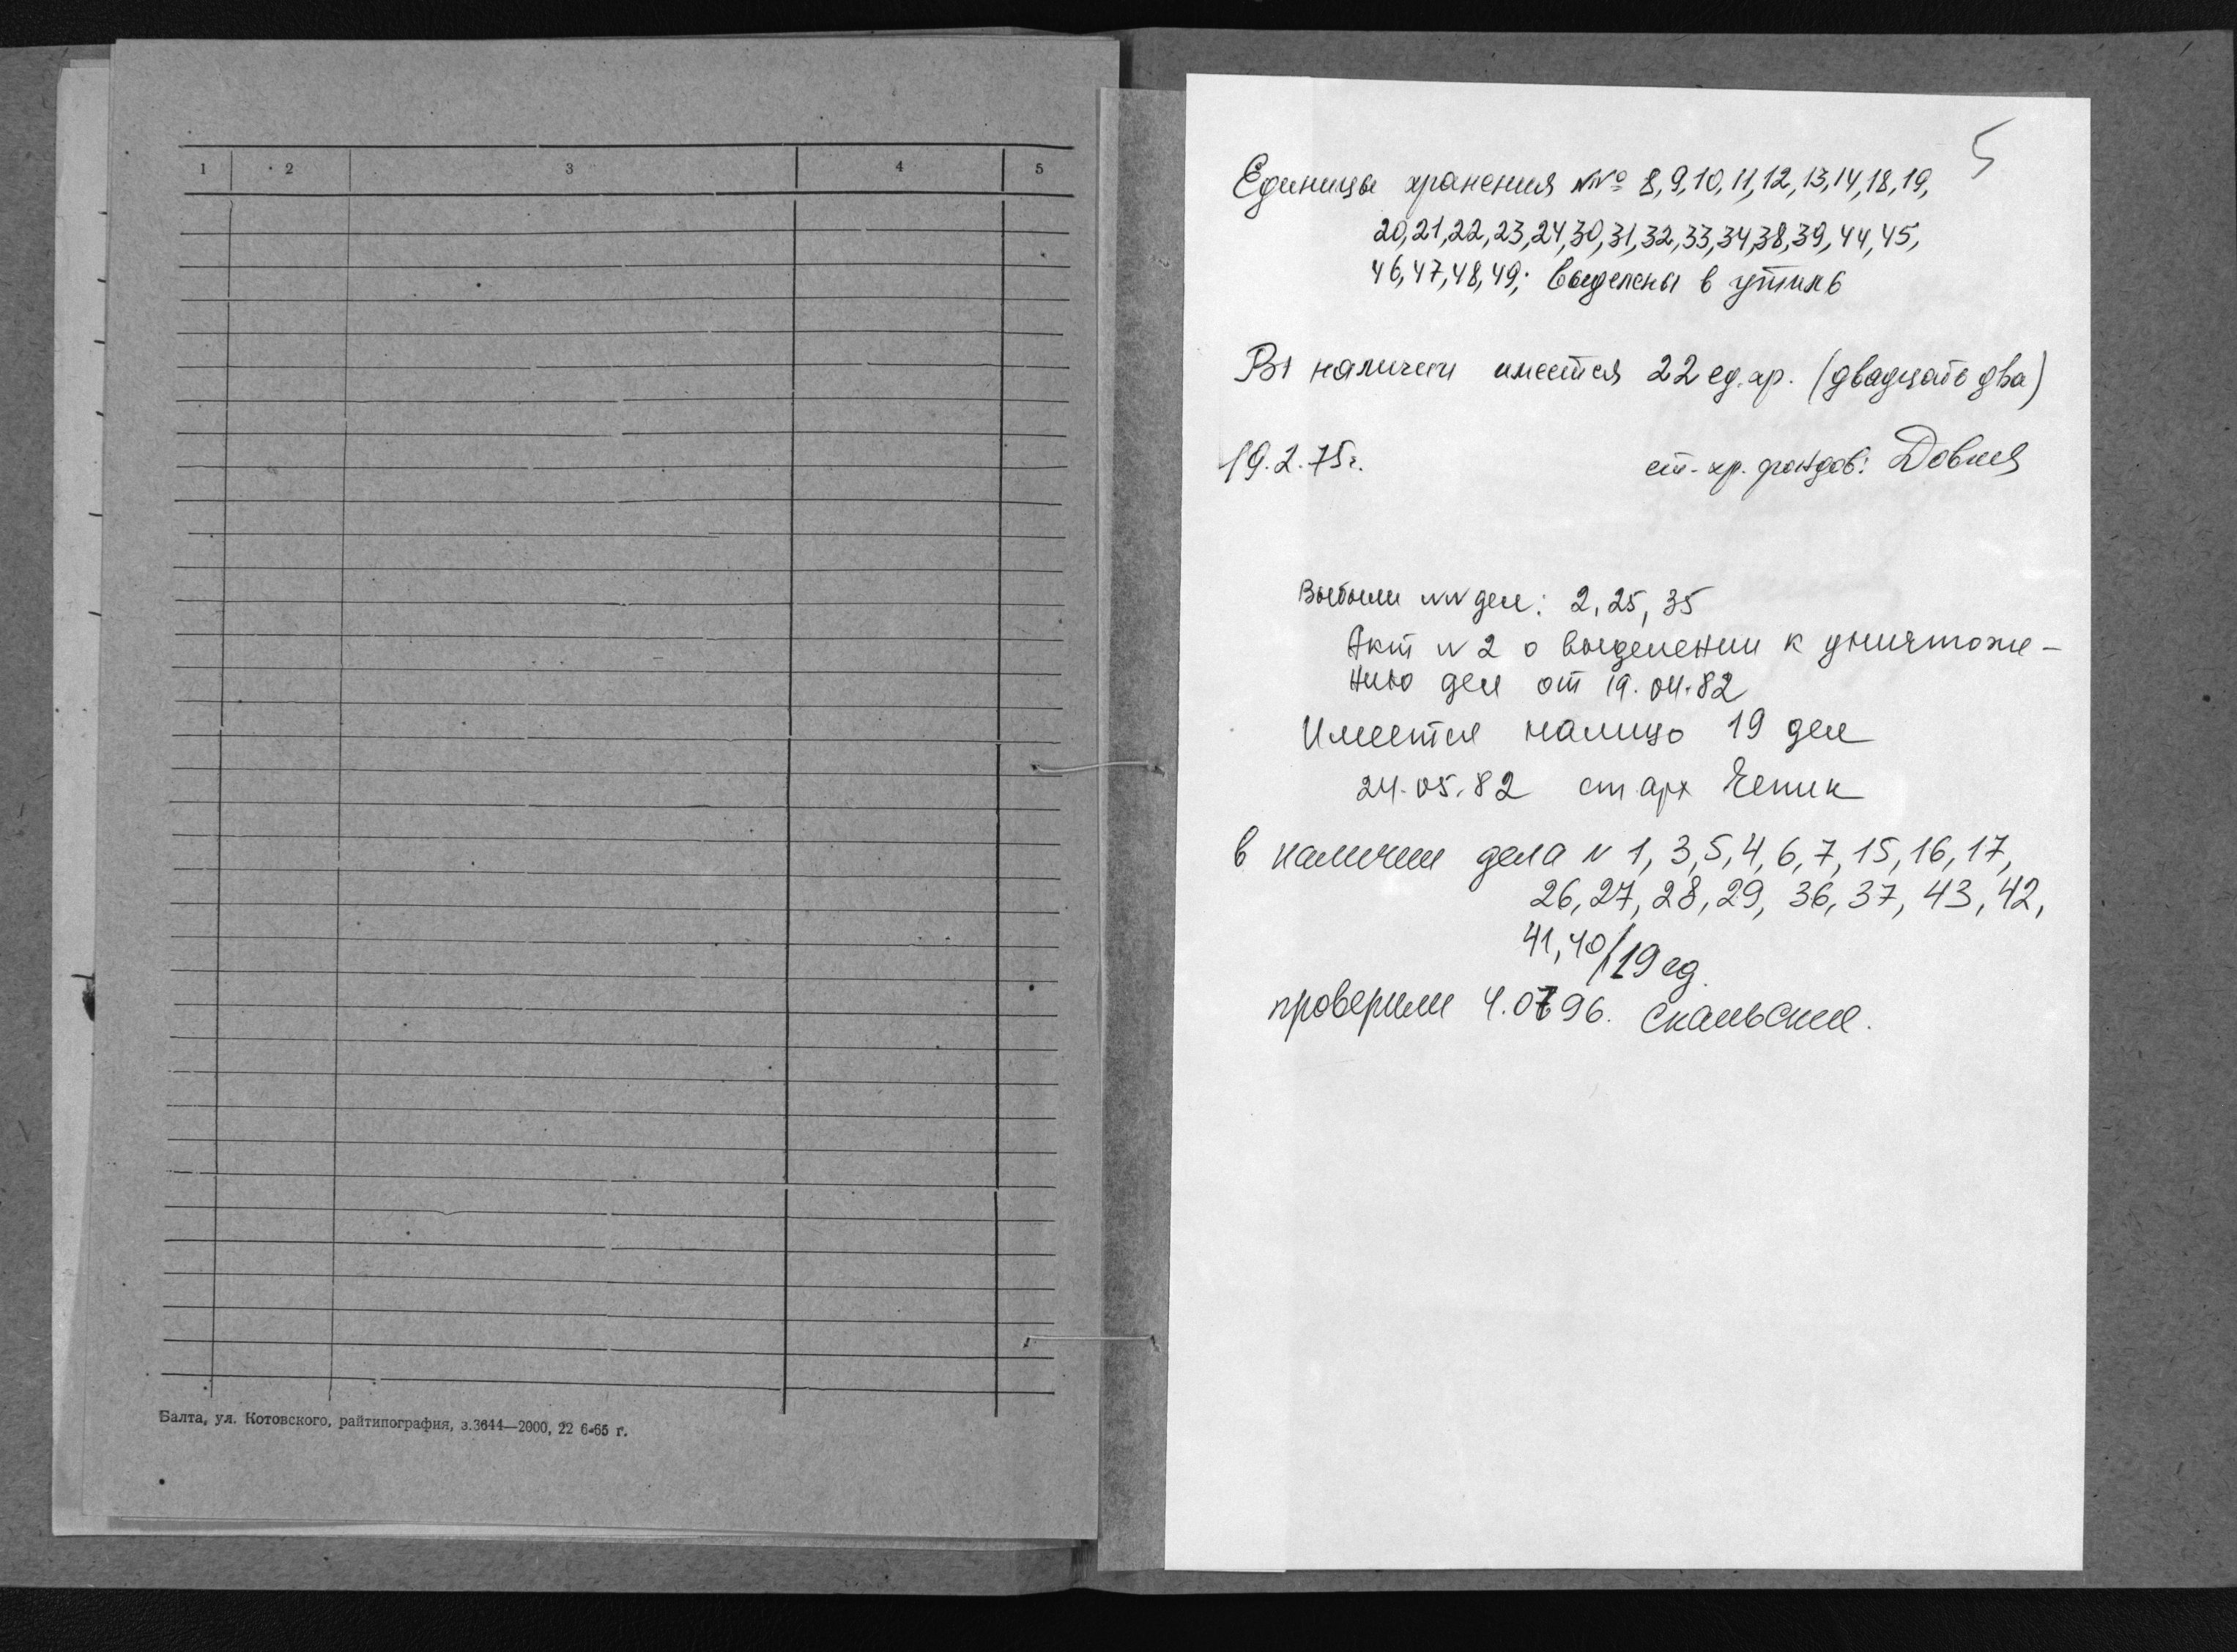 1 2 3 4 5
Балта, ул. Котовского, райтипография, з.3644—2000, 22 6-65 г.
5
Единицы хранения №№ 8, 9, 10, 11, 12, 13, 14, 18, 19,
20, 21, 22, 23, 24, 30, 31, 32, 33, 34, 38, 39, 44, 45,
46, 47, 48, 49; выделены в утиль
В наличии имеется 22 ед. хр. (двадцать два)
19.2.75г. ст. хр. фондов:
Выбыли NN дел: 2, 25, 35
Акт N 2 о выделении к уничтоже-
нию дел от 19.04.82
Имеется налицо 19 дел
24.05.82 ст арх Чепик
в наличии дела N 1, 3, 5, 4, 6, 7, 15, 16, 17,
26, 27, 28, 29, 36, 37, 43, 42,
41, 40/19 ед.
проверили 4.0796.